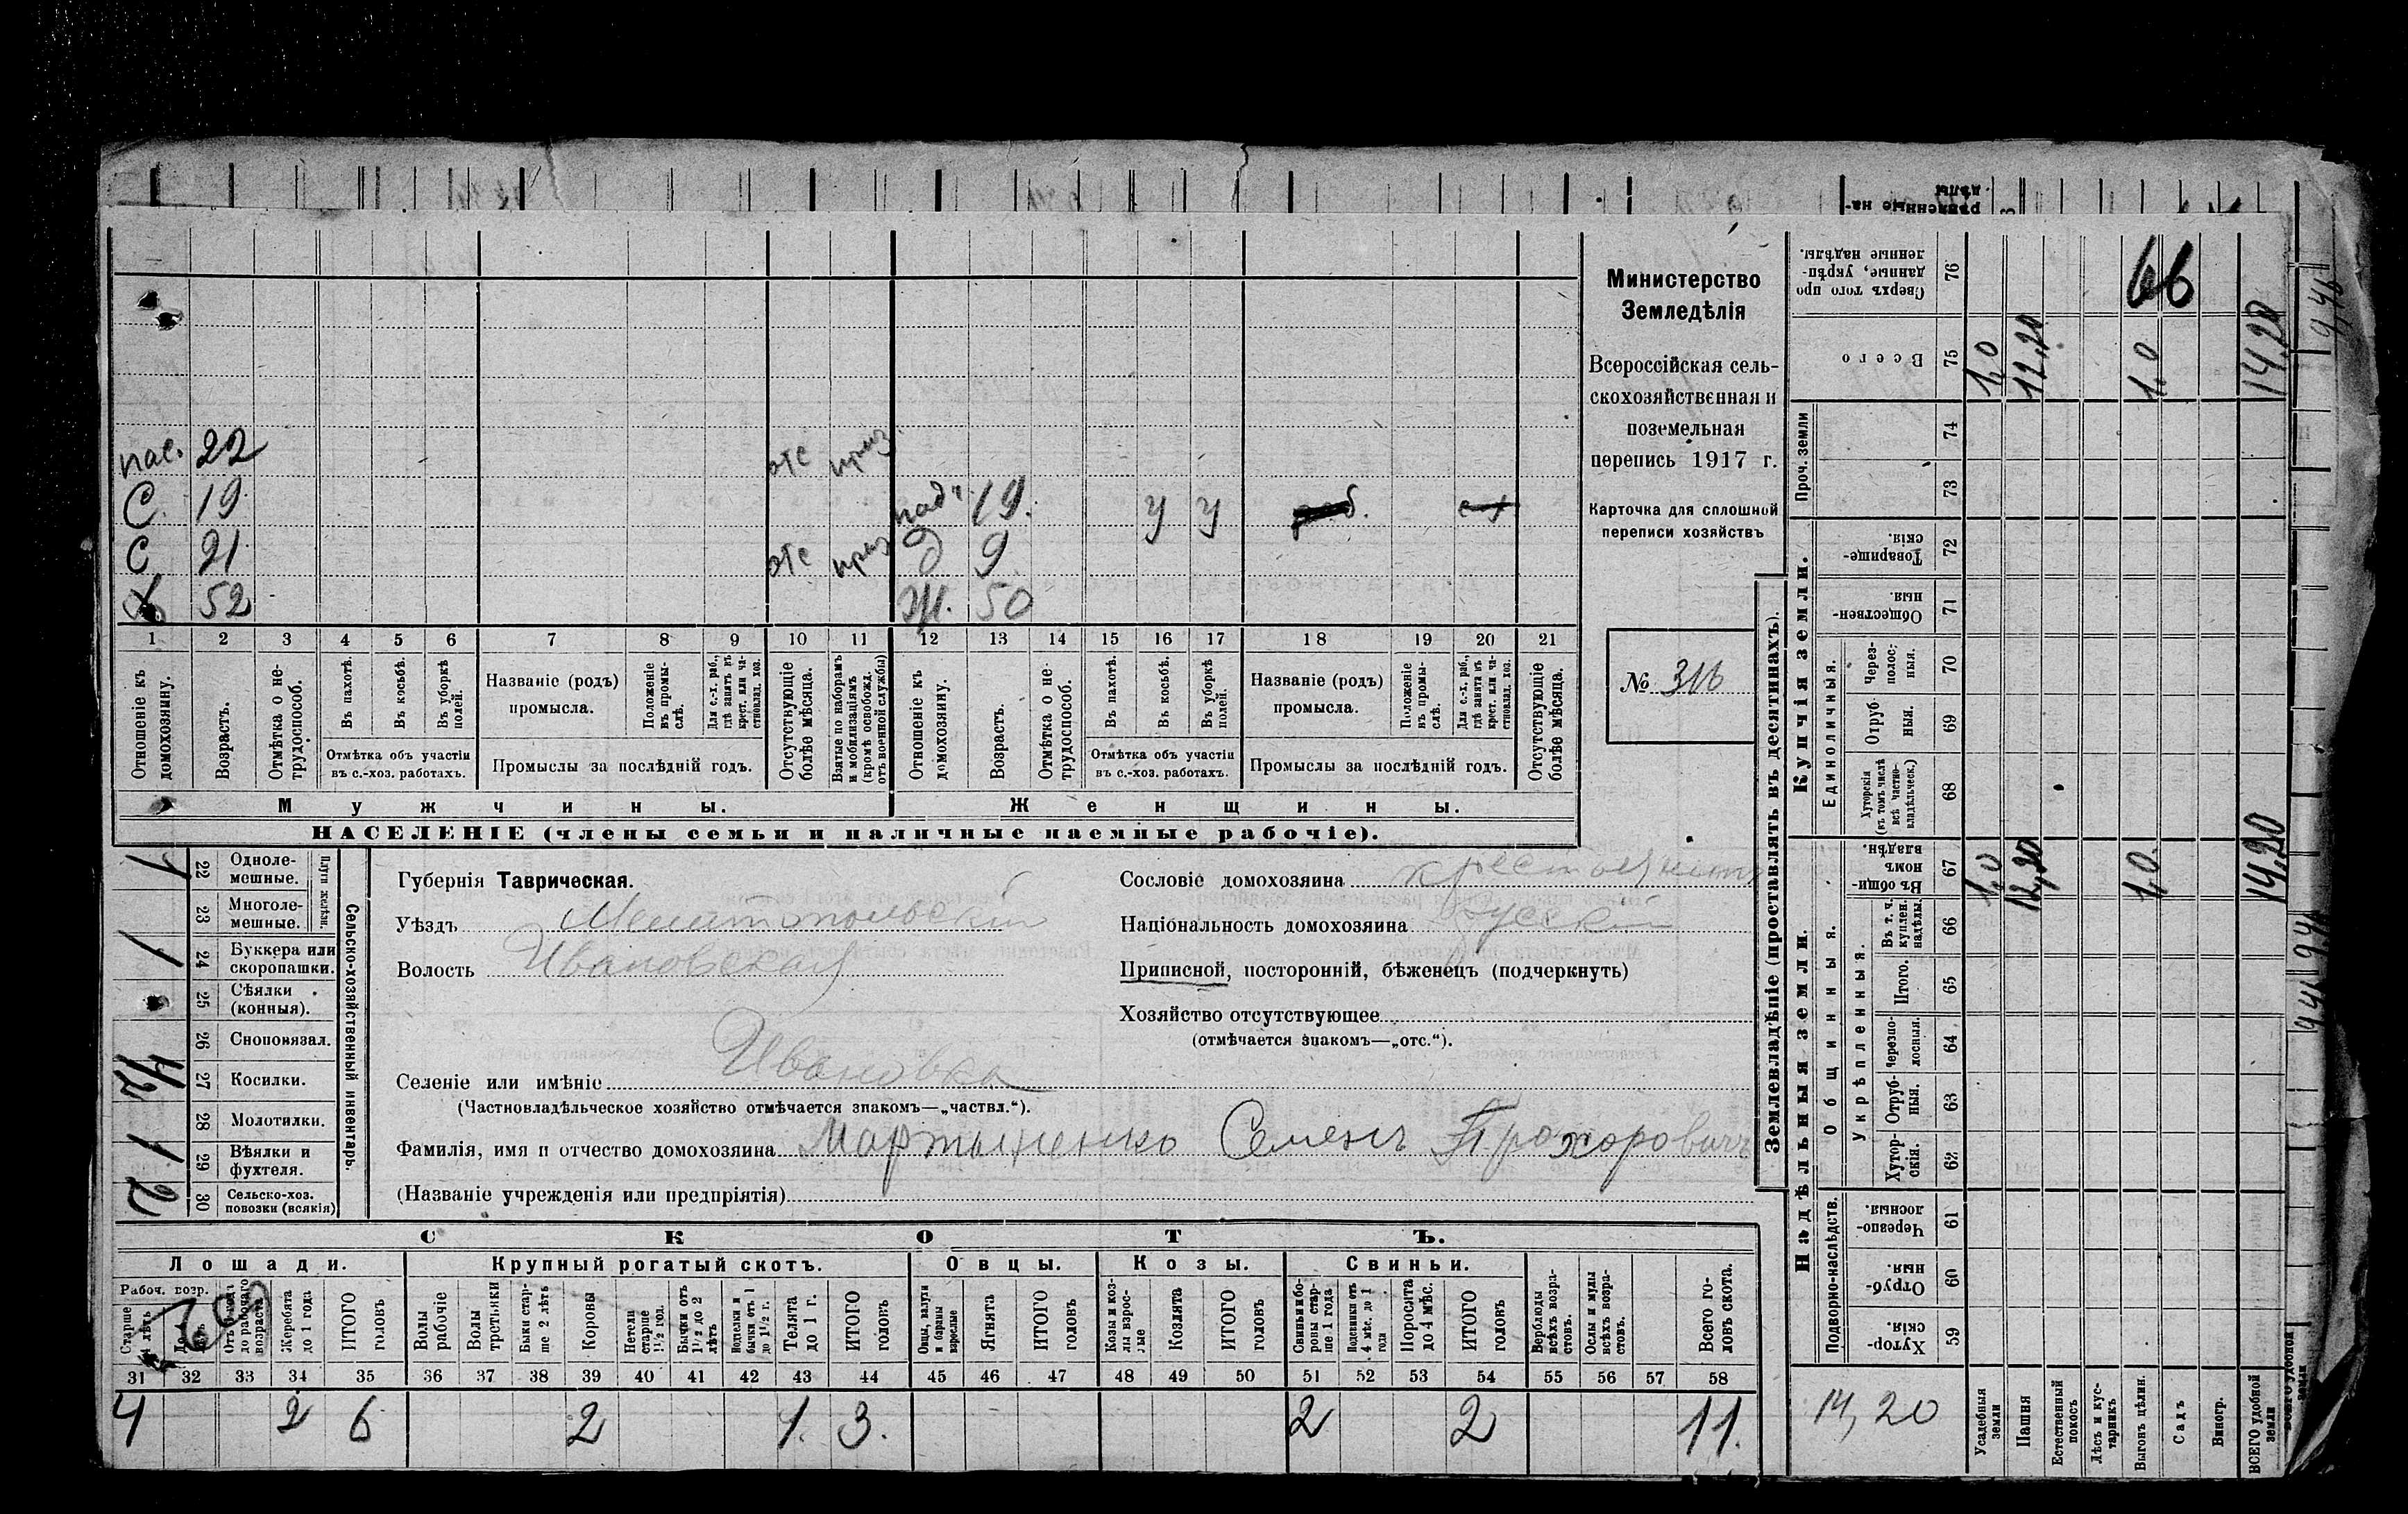 Министерство
Земледѣлія
Всероссійская сель-
скохозяйственная и
поземельная
перепись 1917 г.
Карточка для сплошной
переписи хозяйствъ
№ 316
пас. 22 отс приз.
С. 19 19. у у
С 21 отс приз д 9
Х 52 Ж. 50
1 2 3 4 5 6 7 8 9 10 11 12 13 14 15 16 17 18 19 20 21
Отношеніе къ домохозяину.
Возрастъ.
Отмѣтка о не-трудоспособ.
Въ пахотѣ.
Въ косьбѣ.
Въ уборкѣ полей.
Отмѣтка объ участіи
въ с.-хоз. работахъ.
Названіе (родъ)
промысла.
Положеніе въ промы-слѣ.
Для с.-х. раб., гдѣ занятъ въ крест. или ча-стновлад. хоз.
Промыслы за послѣдній годъ.
Отсутствующіе болѣе мѣсяца.
Взятые по наборамъ и мобилизаціямъ (кромѣ освобожд. отъ военной службы)
Отношеніе къ домохозяину.
Возрастъ.
Отмѣтка о не-трудоспособ.
Въ пахотѣ.
Въ косьбѣ.
Въ уборкѣ полей.
Отмѣтка объ участіи
въ с.-хоз. работахъ.
Названіе (родъ)
промысла.
Положеніе въ промы-слѣ.
Для с.-х. раб., гдѣ занята въ крест. или ча-стновлад. хоз.
Промыслы за послѣдній годъ.
Отсутствующіе болѣе мѣсяца.
Мужчины. Женщины.
НАСЕЛЕНІЕ (члены семьи и наличные наемные рабочіе).
Сельско-хозяйственный инвентарь
Плуги желѣзн.
1 22 Одноле-мешные.
23 Многоле-мешные.
1 24 Буккера или скоропашки.
25 Сѣялки (конныя).
26 Сноповязал.
1/2 27 Косилки.
28 Молотилки.
1 29 Вѣялки и фухтеля.
2 30 Сельско-хоз. повозки (всякія)
Губернія Таврическая.
Уѣздъ Мелитопольскій
Волость Ивановская
Селеніе или имѣніе Ивановка
(Частновладѣльческое хозяйство отмѣчается знакомъ—„частвл.“).
Фамилія, имя и отчество домохозяина Мартыненко Семенъ Прохоровичъ
(Названіе учрежденія или предпріятія)
Сословіе домохозяина крестьянинъ
Національность домохозяина Русскій
Приписной, посторонній, бѣженецъ (подчеркнуть)
Хозяйство отсутствующее
(отмѣчается знакомъ—„отс.“).
СКОТЪ.
Лошади. Крупный рогатый скотъ. Овцы. Козы. Свиньи.
Рабоч. возр.
Старше 4 лѣтъ
Отъ 1 года до рабочаго возраста
Жеребята до 1 года
ИТОГО головъ
Волы рабочіе
Волы третьяки
Быки стар-ше 2 лѣтъ
Коровы
Нетели старше 1 1/2 год.
Бычки отъ 1 1/2 до 2 лѣтъ
Подтелки и бычки отъ 1 до 1 1/2 г.
Телята до 1 г.
ИТОГО головъ
Овцы, валухи и бараны взрослые
Ягнята
ИТОГО головъ
Козы и коз-лы взрос-лые
Козлята
ИТОГО головъ
Свиньи и бо-ровы стар-ше 1 года
Подсвинки отъ 4 мѣс. до 1 года
Поросята до 4 мѣс.
ИТОГО головъ
Верблюды всѣхъ возра-стовъ.
Ослы и мулы всѣхъ возра-стовъ.
Всего го-ловъ скота.
31 32 33 34 35 36 37 38 39 40 41 42 43 44 45 46 47 48 49 50 51 52 53 54 55 56 57 58
4 2 6 2 1. 3. 2 2 11.
Землевладѣніе (проставлять въ десятинахъ).
Надѣльныя земли. Купчія земли.
Проч. земли
Подворно-наслѣдств.
Общинныя.
Укрѣпленныя.
Единоличныя.
76 Сверхъ того про-данные, укрѣп-ленные надѣлы. 66
75 Всего 1,0 12,20 1,0 14,20
74
73
72 Товарище-скія.
71 Обществен-ныя.
70 Через-полос-ныя.
69 Отруб-ныя.
68 Хуторскія (въ томъ числѣ всѣ частно-владѣльческ.)
67 Въ общи-номъ владѣн. 1,0 12,20 1,0 14,20
66 Въ т. ч. куплен. надѣлы.
65 Итого.
64 Черезпо-лосныя.
63 Отруб-ныя.
62 Хутор-скія.
61 Черезпо-лосныя.
60 Отруб-ныя.
59 Хутор-скія.
14,20
Усадебныя земли
Пашня
Естественный покосъ
Лѣсъ и кус-тарникъ
Выгонъ цѣлин.
Садъ
Виногр.
ВСЕГО удобной земли